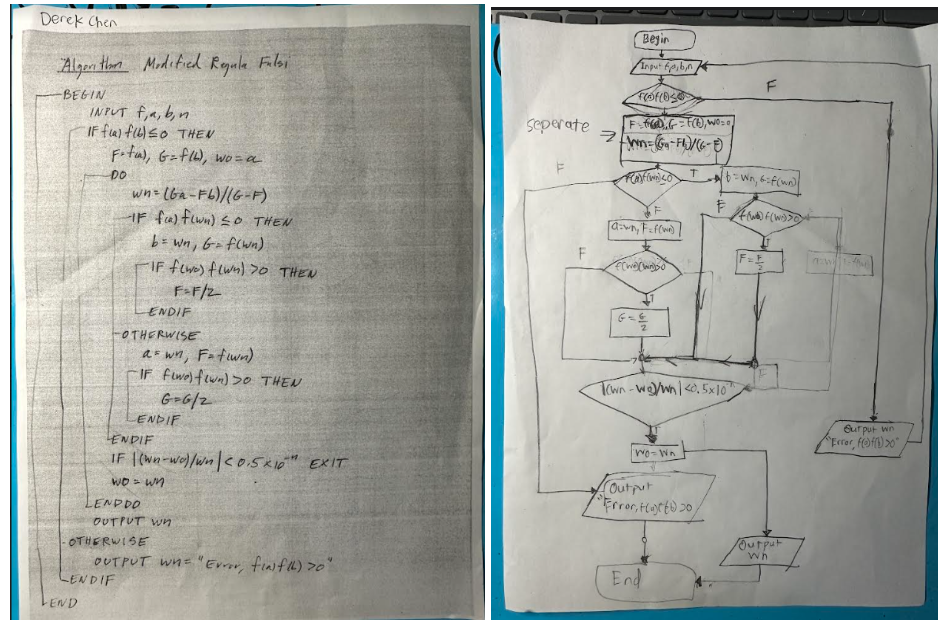 Derek Chen
Algorithm Modified Regula Falsi
BEGIN
INPUT f, a, b, n
IF f(a) f(b) ≤ 0 THEN
F=f(a), G=f(b), wo=a
DO
wn=(Ga-Fb)/(G-F)
IF f(a) f(wn) ≤ 0 THEN
b=wn, G=f(wn)
IF f(wo) f(wn) >0 THEN
F=F/2
ENDIF
OTHERWISE
a=wn, F=f(wn)
IF f(wo) f(wn) >0 THEN
G=G/2
ENDIF
ENDIF
IF |(wn-wo)/wn| < 0.5×10⁻ⁿ EXIT
wo=wn
ENDDO
OUTPUT wn
OTHERWISE
OUTPUT wn="Error, f(a)f(b)>0"
ENDIF
END
Begin
Input f,a,b,n
F
seperate
wn=(Ga-Fb)/(G-F)
F
T
b=wn, G=f(wn)
F
F
a=wn, F=f(wn)
F
F=F/2
G=G/2
F
Wo=Wn
Output wn
"Error, f(a)f(b)>0"
Output
"Error, f(a)f(b)>0
Output
wn
End